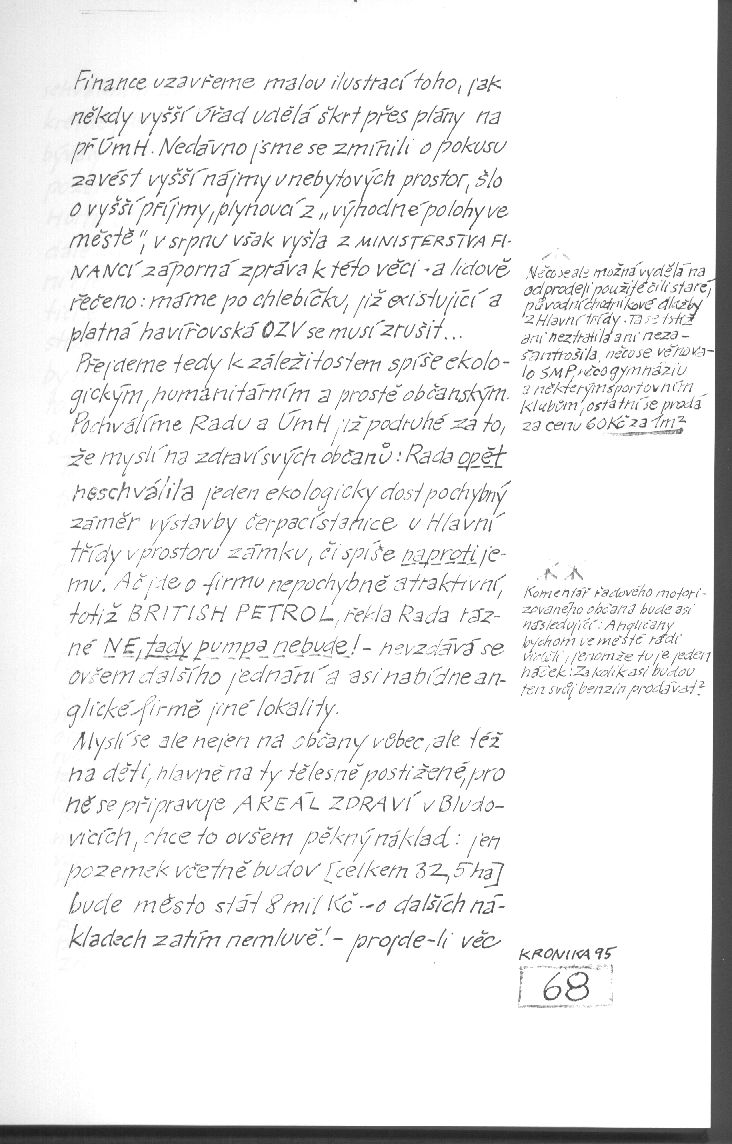 Finance uzavřeme malou ilustrací toho, jak
někdy vyšší úřad udělá škrt přes plány na
př ÚmH. Nedávno jsme se zmínili o pokusu
zavést vyšší nájmy u nebytových prostor, šlo
o vyšší příjmy, plynoucí z „výhodné polohy ve
městě", v srpnu však vyšla z MINISTERSTVA FI-
NANCÍ záporná zpráva k této věci - a lidově
řečeno: máme po chlebíčku, již existující a
platná havířovská OZV se musí zrušit...
Přejdeme tedy k záležitostem spíše ekolo-
gickým, humanitárním a prostě občanským.
Pochválíme Radu a ÚmH již podruhé za to,
že myslí na zdraví svých občanů: Rada opět
neschválila jeden ekologicky dost pochybný
záměr výstavby čerpací stanice u Hlavní
třídy v prostoru zámku, či spíše naproti je-
mu. Ač jde o firmu nepochybně atraktivní,
totiž BRITISH PETROL, řekla Rada ráz-
né NE, tady pumpa nebude! - nevzdává se
ovšem dalšího jednání a asi nabídne an-
glické firmě jiné lokality.
Myslí se ale nejen na občany vůbec, ale též
na děti, hlavně na ty tělesně postižené, pro
ně se připravuje AREÁL ZDRAVÍ v Bludo-
vicích, chce to ovšem pěkný náklad: jen
pozemek včetně budov [celkem 32,5 ha]
bude město stát 8 mil Kč - o dalších ná-
kladech zatím nemluvě! - projde-li věc
Něco se ale možná vydělá na
odprodeji použité čili staré,
původní chodníkové dlažby
z Hlavní třídy. Ta se totiž
ani neztratila ani neza-
šantročila, něco se věnova-
lo SMP, něco gymnáziu
a některým sportovním
klubům, ostatní se prodá
za cenu 60 Kč za 1m²
Komentář řadového motori-
zovaného občana bude asi
následující: Angličany
bychom ve městě rádi
viděli, jenomže tu je jeden
háček: Za kolik asi budou
ten svůj benzín prodávat?
KRONIKA 95
68